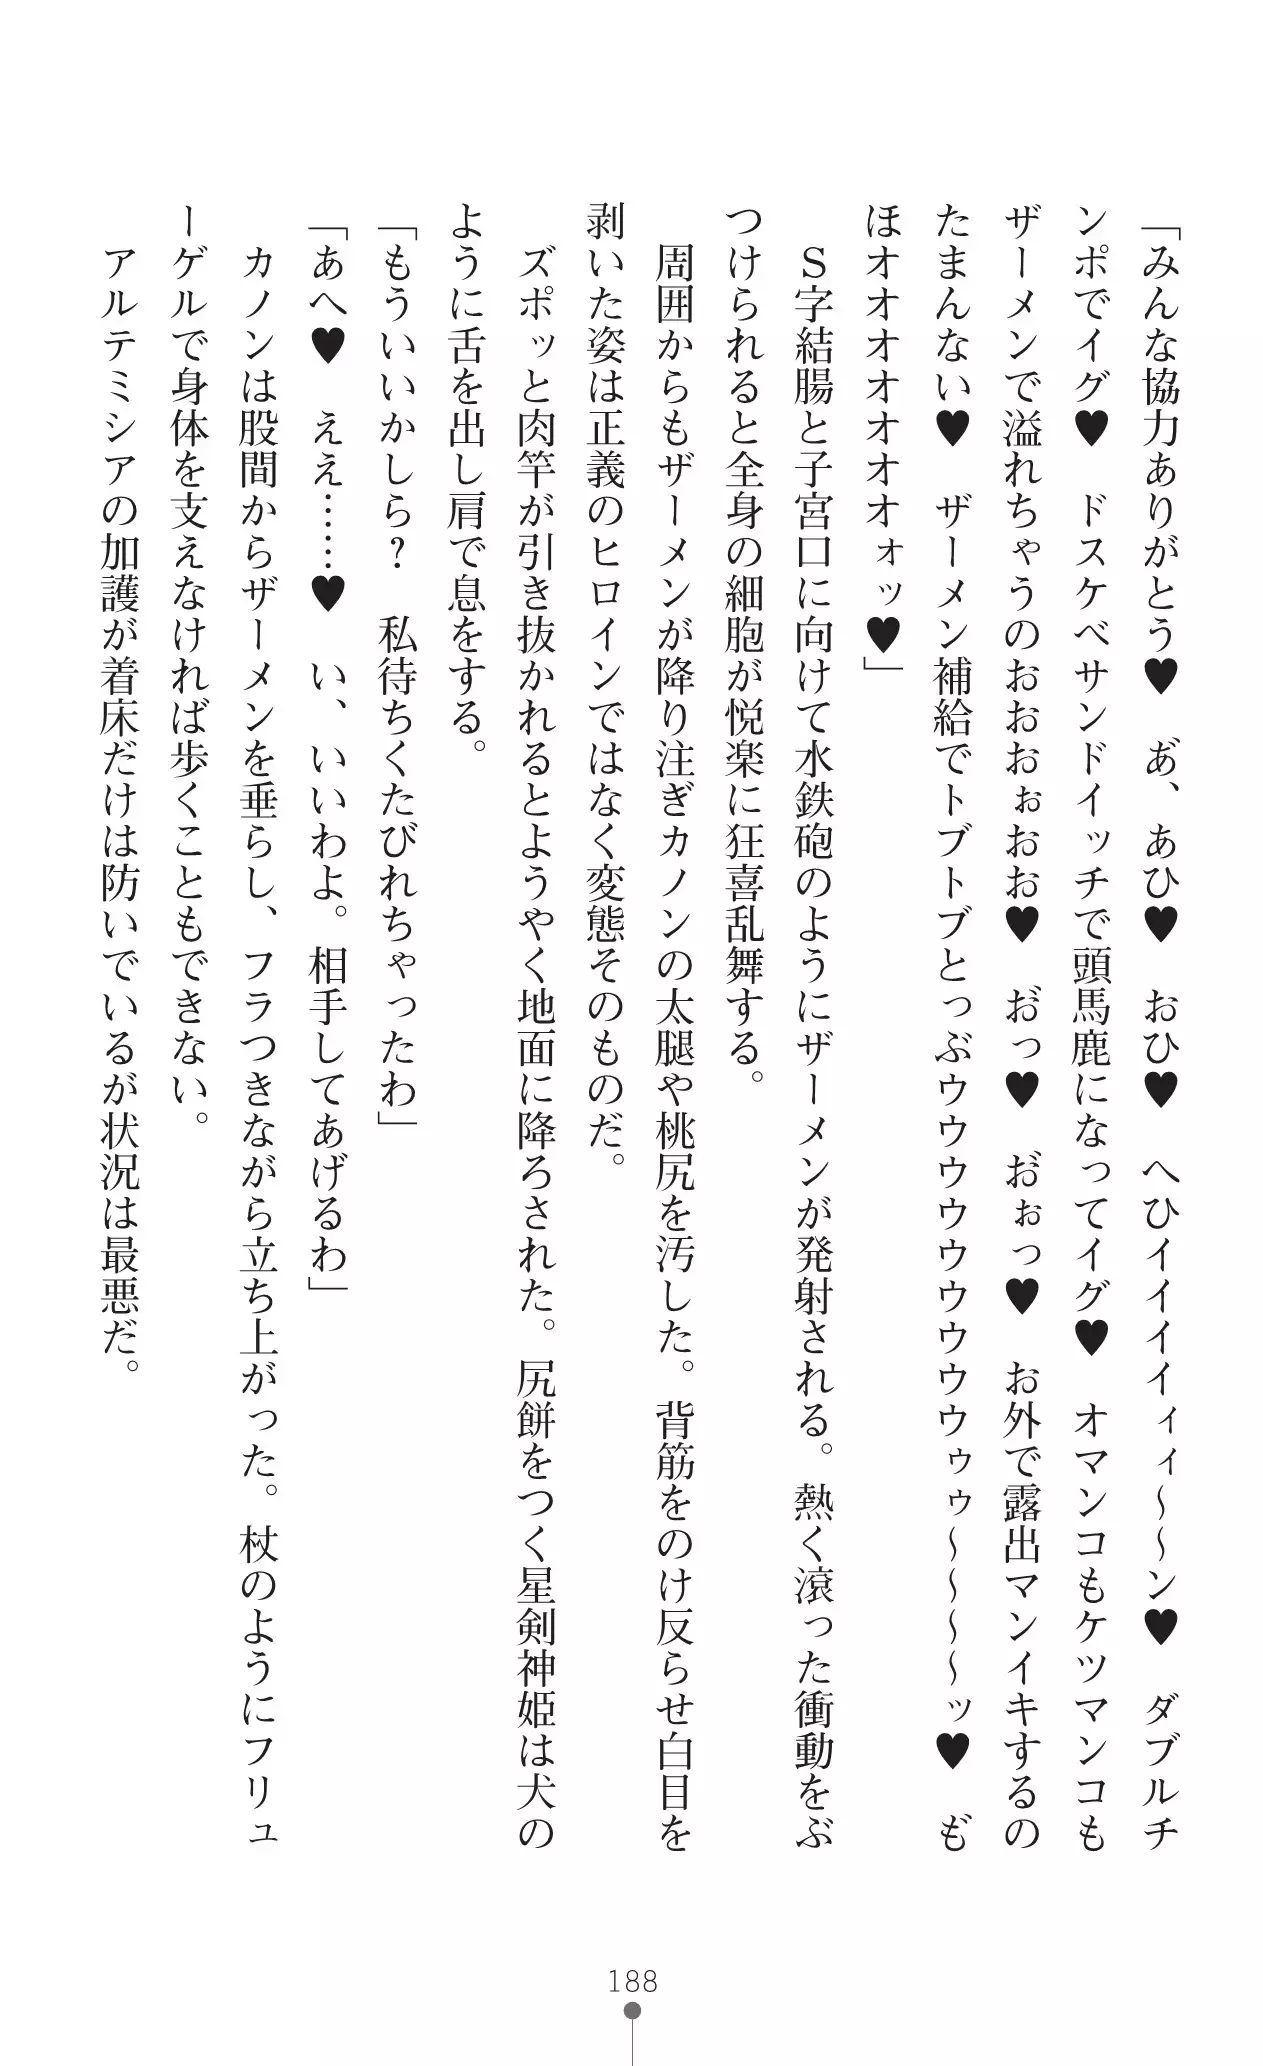 「みんな協力ありがとう♥　あ゛、あひ♥　おひ♥　へひイイイイィィ～～ン♥　ダブルチ
ンポでイグ♥　ドスケベサンドイッチで頭馬鹿になってイグ♥　オマンコもケツマンコも
ザーメンで溢れちゃうのおおおぉおお♥　お゛っ♥　お゛ぉっ♥　お外で露出マンイキするの
たまんない♥　ザーメン補給でトブトブとっぷウウウウウウウウウゥゥ～～～～ッ♥　も゛
ほオオオオオオオォッ♥」
　Ｓ字結腸と子宮口に向けて水鉄砲のようにザーメンが発射される。熱く滾った衝動をぶ
つけられると全身の細胞が悦楽に狂喜乱舞する。
　周囲からもザーメンが降り注ぎカノンの太腿や桃尻を汚した。背筋をのけ反らせ白目を
剥いた姿は正義のヒロインではなく変態そのものだ。
　ズポッと肉竿が引き抜かれるとようやく地面に降ろされた。尻餅をつく星剣神姫は犬の
ように舌を出し肩で息をする。
「もういいかしら？　私待ちくたびれちゃったわ」
「あへ♥　ええ……♥　い、いいわよ。相手してあげるわ」
　カノンは股間からザーメンを垂らし、フラつきながら立ち上がった。杖のようにフリュ
ーゲルで身体を支えなければ歩くこともできない。
　アルテミシアの加護が着床だけは防いでいるが状況は最悪だ。
188